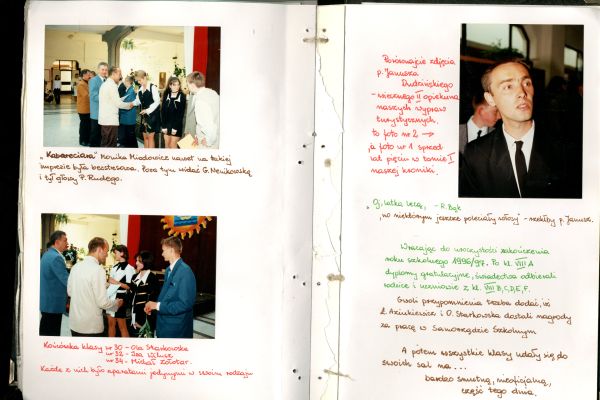 "Kabareciara" Monika Miodowicz nawet na takiej
imprezie była bezstresowa. Poza tym widać G. Nenikowską
i tył głowy P. Rudego.
Końcówka klasy nr 30 - Ola Starkowska
nr 32 - Iza Wilusz
nr 34 - Michał Zołotar.
Każde z nich było aparatami jedynymi w swoim rodzaju
Porównajcie zdjęcia
p. Janusza
Dudzińskiego
- wiecznego II opiekuna
naszych wypraw
turystycznych.
to foto nr 2 →
a foto nr 1 sprzed
lat pięciu w tomie I
naszej kroniki.
"Oj, latka lecą, - R. Bąk
"no niektórym jeszcze poleciały włosy" - rzekłby p. Janusz.
Wracając do uroczystości zakończenia
roku szkolnego 1996/97. Po kl. VIII A
dyplomy gratulacyjne, świadectwa odbierali
rodzice i uczniowie z kl. VIII B, C, D, E, F.
Gwoli przypomnienia trzeba dodać, iż
i O. Starkowska dostali nagrody
za pracę w Samorządzie Szkolnym
A potem wszystkie klasy udały się do
swoich sal na ...
bardzo smutną, nieoficjalną,
część tego dnia.